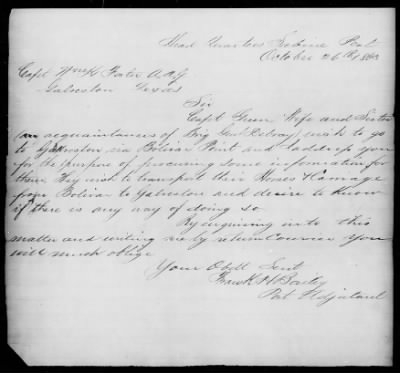 Head Quarters Sabine Post
October 26th 1863
Capt Wm K Foster A.A.G
Galveston Texas
Sir
Capt Green Wife and Sister
(an acquaintances of Brig Genl ) wish to go
to Galveston via Bolivar Point and address you
for the purpose of procuring some information for
them. They wish to transport their Horses & Carriage
from Bolivar to Galveston and desire to know
if there is any way of doing so
By enquiring into this
matter and writing me by return Courier You
will much oblige
Your Obdt Servt
Frank H Bailey
Post Adjutant